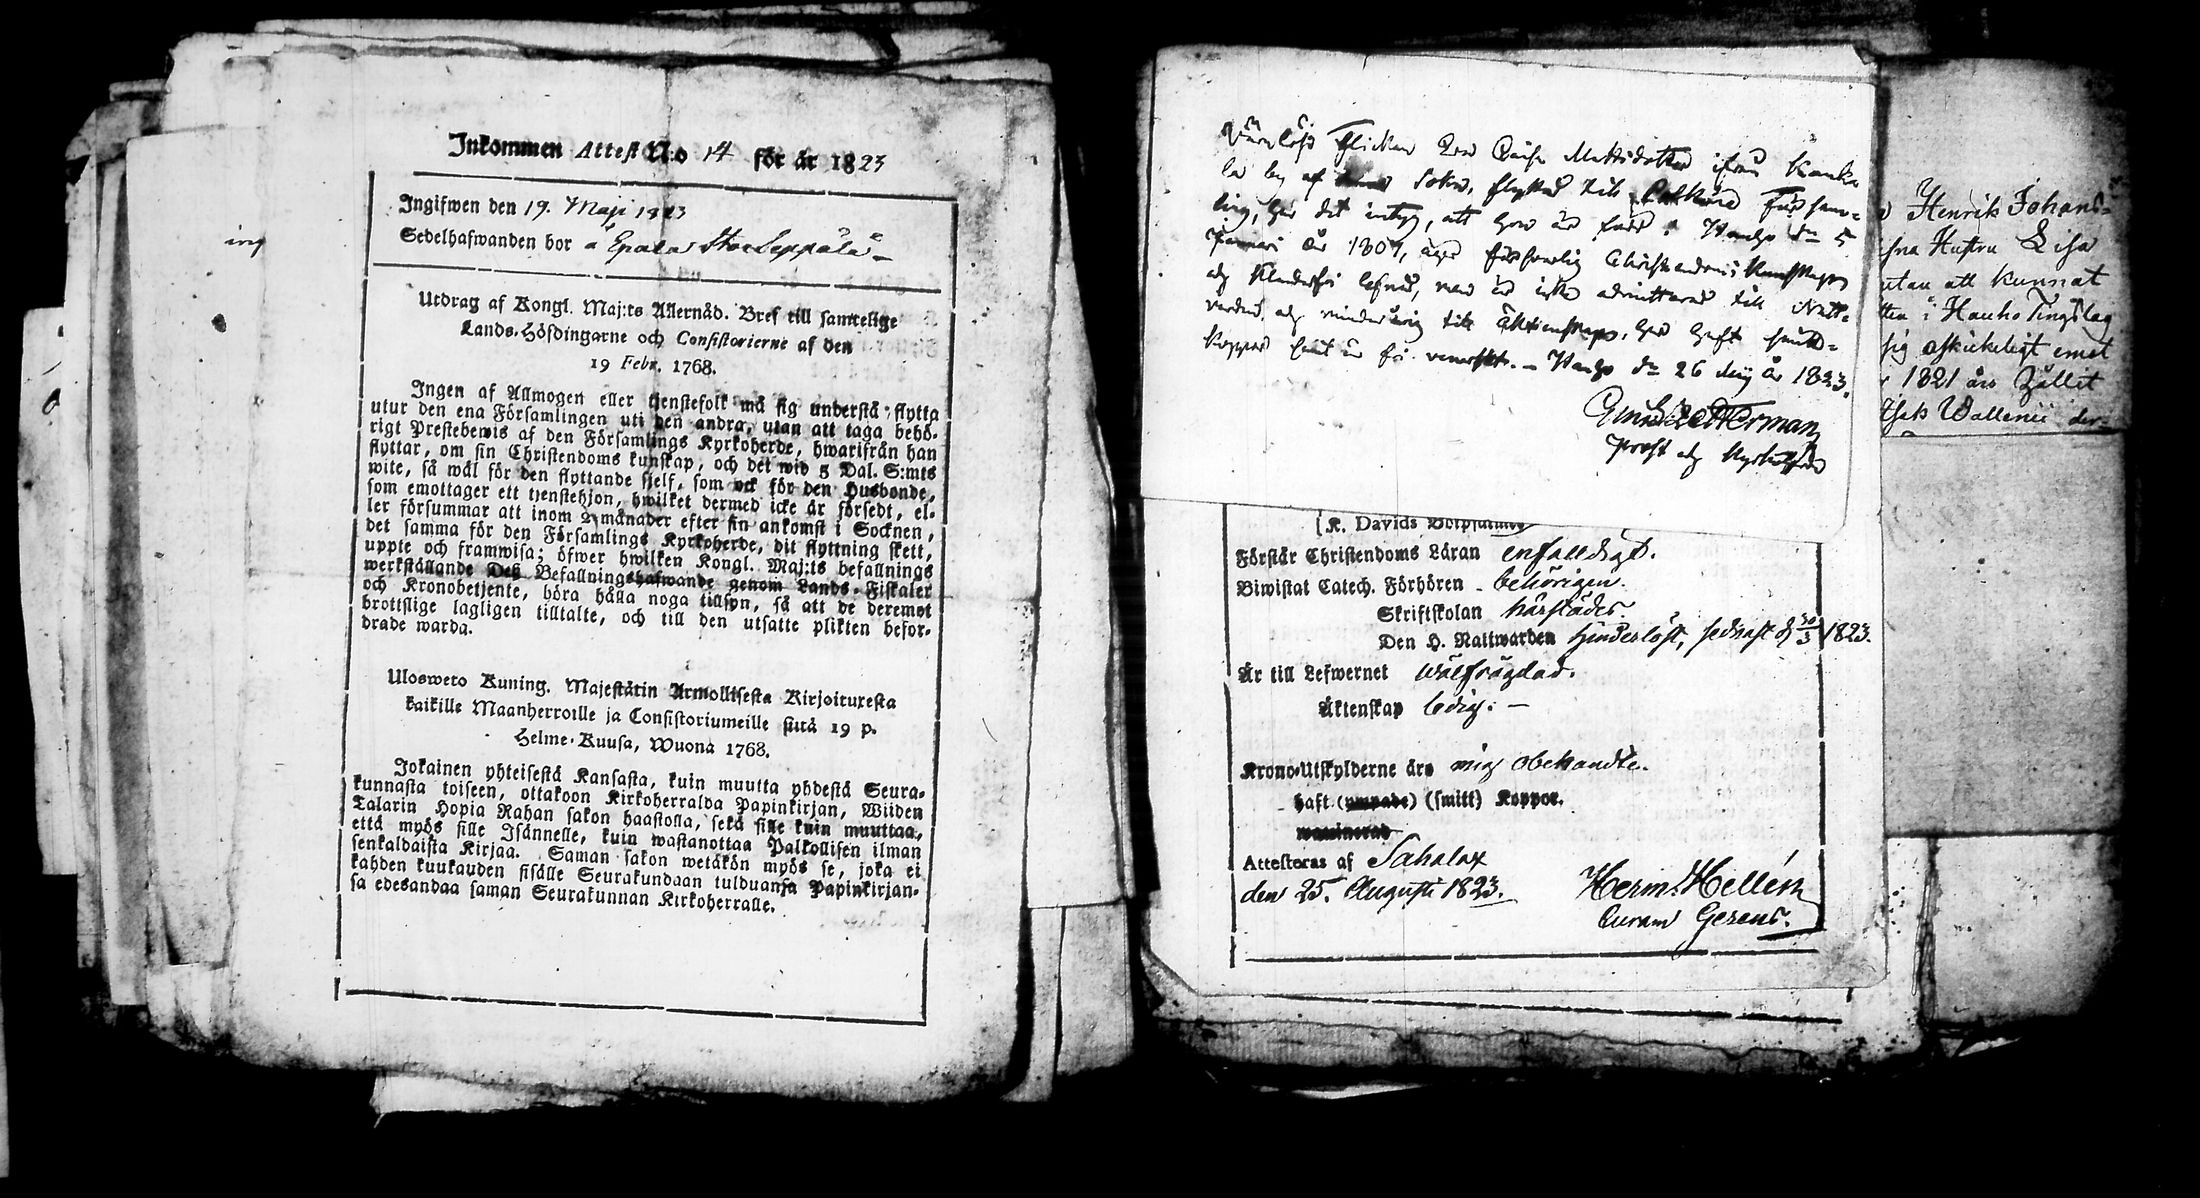 Inkommen Attest No 14 för år 1823
Ingifwen den 19. Maji 1823
Sedelhafwanden bor å Epala Stor Seppälä
ing
Utdrag af Kongl. Maj:ts Allernåd. Bref till samtelige
Lands-Höfdingarne och Consistorierne af den
19 Febr. 1768.
Ingen af Allmogen eller tjenstefolk må sig understå flytta
utur den ena Församlingen uti den andra, utan att taga behö-
rigt Prestebewis af den Församlings Kyrkoherde, hwarifrån han
flyttar, om sin Christendoms kunskap, och det wid 5 Dal. S:mts
wite, så wäl för den flyttande sjelf, som ock för den Husbonde,
som emottager ett tjenstehjon, hwilket dermed icke är försedt, el-
ler försummar att inom 2 månader efter sin ankomst i Socknen,
det samma för den Församlings Kyrkoherde, dit flyttning skett,
uppte och framwisa; öfwer hwilken Kongl. Maj:ts befallnings
werkställande Deß Befallningshafwande genom Lands-Fiskaler
och Kronobetjente, böra hålla noga tillsyn, så att de deremot
brottslige lagligen tilltalte, och till den utsatte plikten befor-
drade warda.
Ulosweto Kuning. Majestätin Armollisesta Kirjoituxesta
kaikille Maanherroille ja Consistoriumeille siitä 19 p.
Helme-Kuusa, Wuonna 1768.
Jokainen yhteisestä Kansasta, kuin muutta yhdestä Seura-
kunnasta toiseen, ottakoon Kirkoherralda Papinkirjan, Wiiden
Talarin Hopia Rahan sakon haastolla, sekä sille kuin muuttaa,
että myös sille Isännelle, kuin wastanottaa Palkollisen ilman
senkaldaista Kirjaa. Saman sakon wetäkön myös se, joka ei
kahden kuukauden sisälle Seurakundaan tulduansa Papinkirjan-
sa edesandaa saman Seurakunnan Kirkoherralle.
Wärnlösa Flickan Mattsdotter ifrån Kanka-
la by af Sokn, flyttad till Församl-
ing, får det intyg, att hon är född i Hauho d. 5
Januari år 1807, äger försvarlig Christendoms Kunskap
och klanderfri lefnad, men är icke admitterad till Natt-
varden, och minderårig till Äktenskap, har haft smitt-
koppor. Hauho d. 26 Maij år 1823.
Zetterman
Prost och Kyrkoherde
Henrik Johans-
Hustru Lisa
utan att kunnat
i Hauho Tingslag
sig oskickeligt emot
1821 års
Wallenii der-
(K. Davids Botpsalmer
Förstår Christendoms Läran enfaldigt.
Biwistat Catech. Förhören behörigen.
Skriftskolan härstädes
Den H. Nattwarden hinderlöst, sednast d. 30/3 1823.
Är till Lefwernet wälfrägdad.
Äktenskap ledig. —
Krono-Utskylderne äro mig obekandte.
haft (ympade) (smitt) Koppor.
waccinerad
Attesteras af Sahalax
den 25. Augusti 1823.
Herm. Hellén
Curam Gerens.